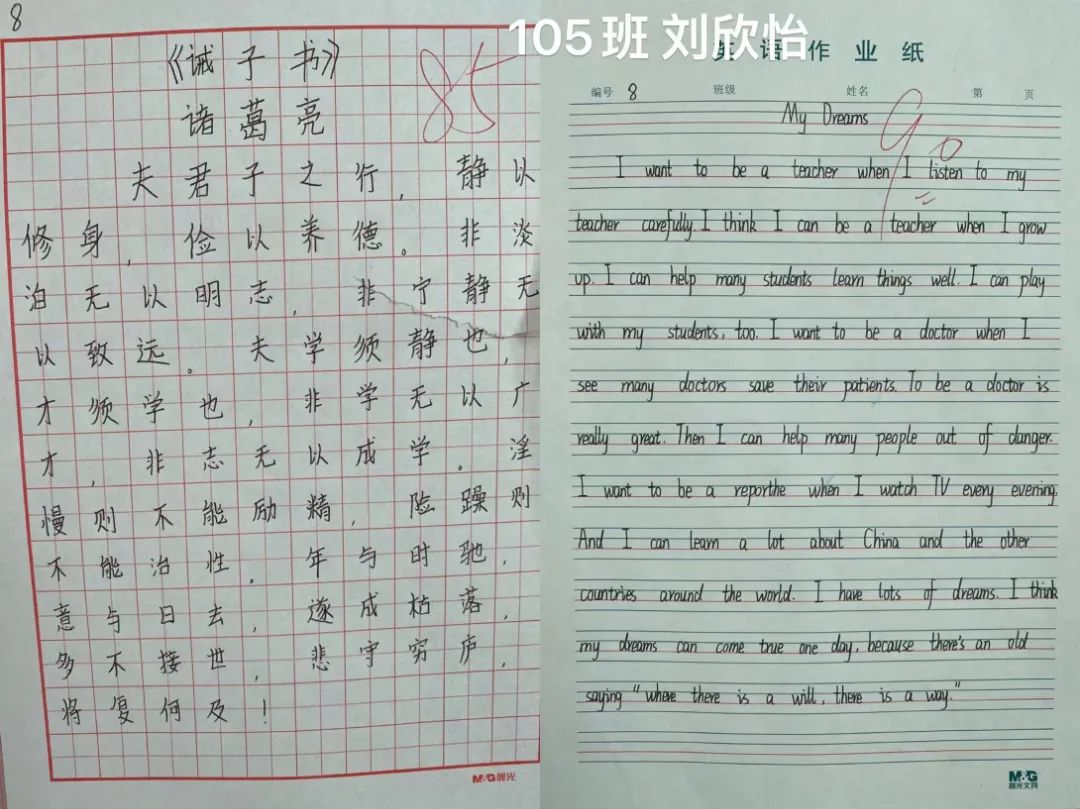 105班 刘欣怡
8
85
《诫子书》
诸葛亮
夫君子之行,静以
修身,俭以养德。非淡
泊无以明志,非宁静无
以致远。夫学须静也,
才须学也,非学无以广
才,非志无以成学。淫
慢则不能励精,险躁则
不能治性。年与时驰,
意与日去,遂成枯落,
多不接世,悲守穷庐,
将复何及!
M&G晨光
英语作业纸
编号 8 班级 姓名 第 页
My Dreams
90
I want to be a teacher when I listen to my
teacher carefully. I think I can be a teacher when I grow
up. I can help many students learn things well. I can play
with my students, too. I want to be a doctor when I
see many doctors save their patients. To be a doctor is
really great. Then I can help many people out of danger.
I want to be a reporthe when I watch TV every evening.
And I can learn a lot about China and the other
countries around the world. I have lots of dreams. I think
my dreams can come true one day, because there's an old
saying "where there is a will, there is a way."
M&G
晨光文具